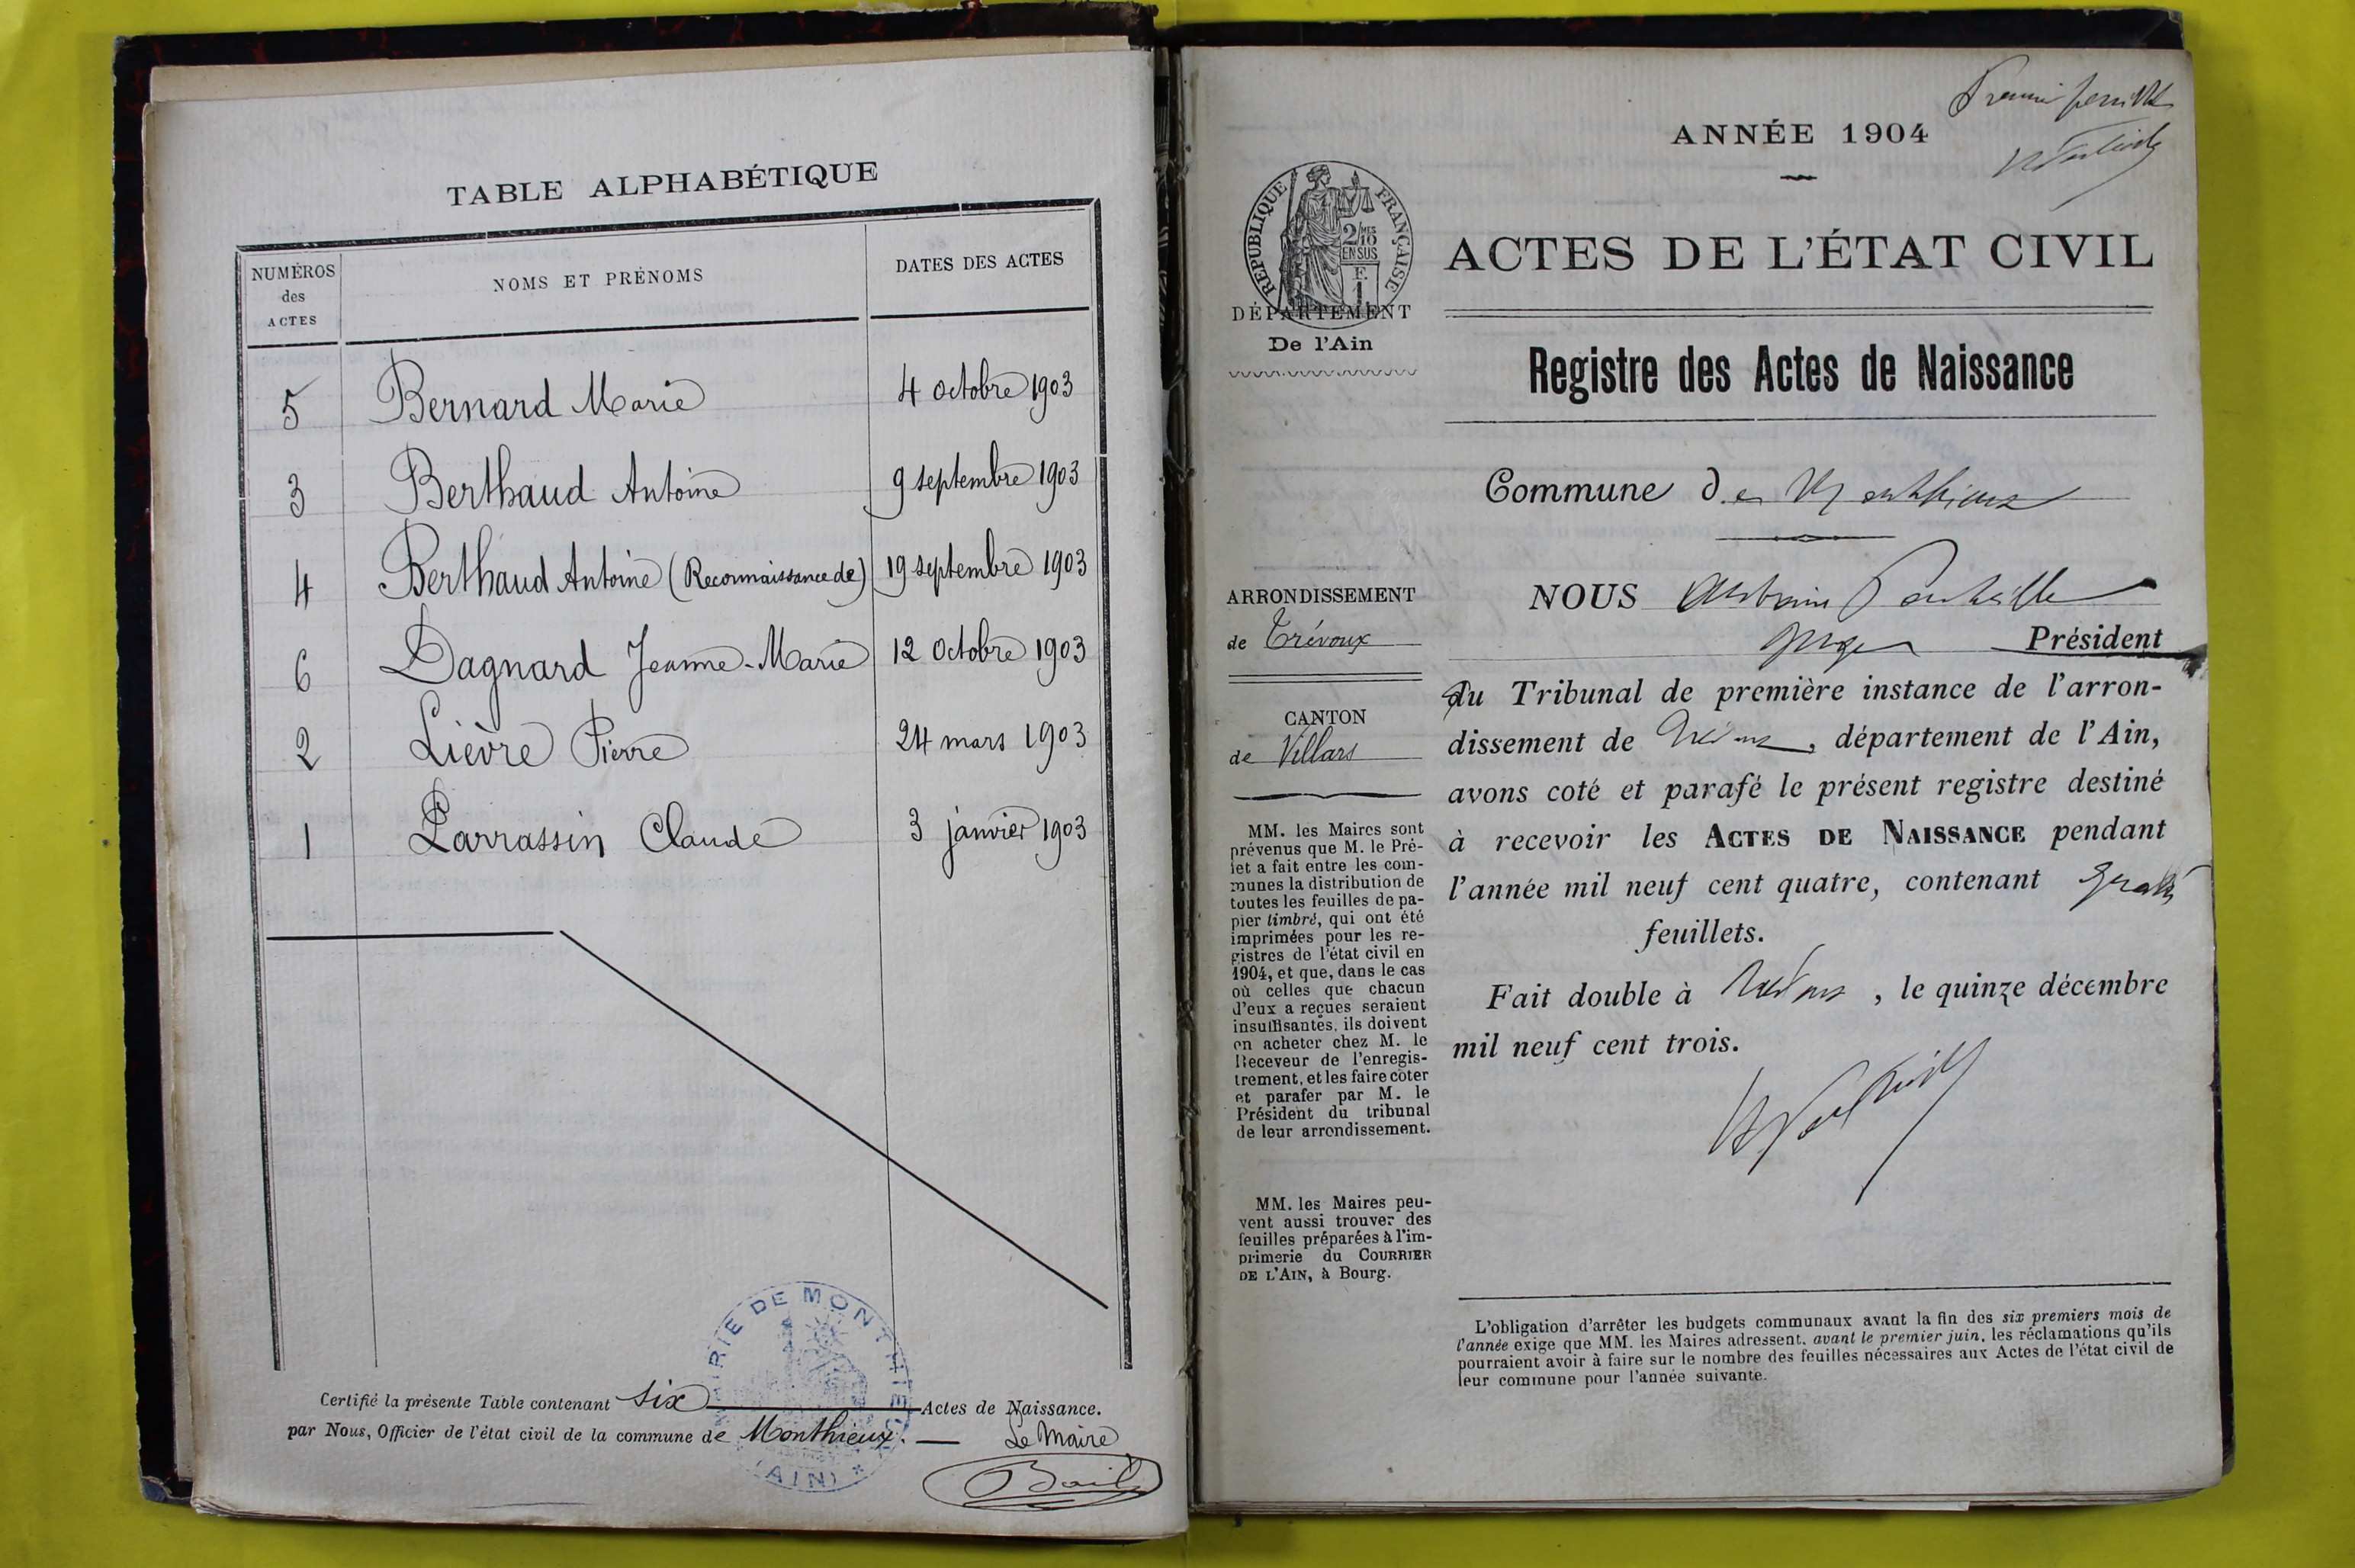 TABLE ALPHABÉTIQUE
NUMÉROS des ACTES
NOMS ET PRÉNOMS
DATES DES ACTES
5 Bernard Marie 4 octobre 1903
3 Berthaud Antoine 9 septembre 1903
4 Berthaud Antoine (Reconnaissance de) 19 septembre 1903
6 Dagnard Jeanne-Marie 12 Octobre 1903
2 Lièvre Pierre 24 mars 1903
1 Parrassin Claude 3 janvier 1903
Certifié la présente Table contenant six Actes de Naissance.
par Nous, Officier de l'état civil de la commune de Monthieux.
Le Maire
MAIRIE DE MONTHIEUX
(AIN) *
Premier feuillet
ANNÉE 1904
RÉPUBLIQUE FRANÇAISE
2/10 MES
EN SUS
F.
1
ACTES DE L'ÉTAT CIVIL
DÉPARTEMENT
De l'Ain
Registre des Actes de Naissance
Commune de Monthieux
ARRONDISSEMENT
de Trévoux
CANTON
de Villars
MM. les Maires sont
prévenus que M. le Pré-
fet a fait entre les com-
munes la distribution de
toutes les feuilles de pa-
pier timbré, qui ont été
imprimées pour les re-
gistres de l'état civil en
1904, et que, dans le cas
où celles que chacun
d'eux a reçues seraient
insuffisantes, ils doivent
en acheter chez M. le
Receveur de l'enregis-
trement, et les faire coter
et parafer par M. le
Président du tribunal
de leur arrondissement.
MM. les Maires peu-
vent aussi trouver des
feuilles préparées à l'im-
primerie du COURRIER
DE L'AIN, à Bourg.
NOUS
juge Président
du Tribunal de première instance de l'arron-
dissement de Trévoux, département de l'Ain,
avons coté et parafé le présent registre destiné
à recevoir les ACTES DE NAISSANCE pendant
l'année mil neuf cent quatre, contenant
feuillets.
Fait double à Trévoux, le quinze décembre
mil neuf cent trois.
L'obligation d'arrêter les budgets communaux avant la fin des six premiers mois de
l'année exige que MM. les Maires adressent, avant le premier juin, les réclamations qu'ils
pourraient avoir à faire sur le nombre des feuilles nécessaires aux Actes de l'état civil de
leur commune pour l'année suivante.